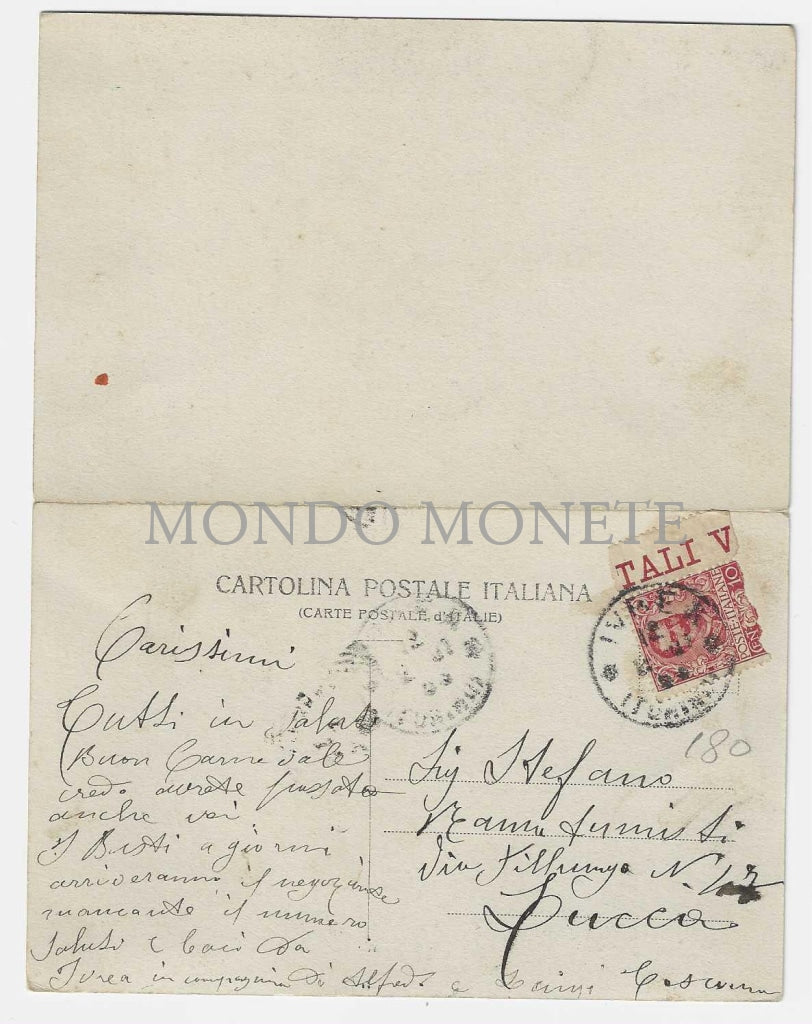 MONDO MONETE
TALI V
CARTOLINA POSTALE ITALIANA
(CARTE POSTALE d'ITALIE)
POSTE ITALIANE
IVREA
(TORINO)
(TORINO)
180
Carissimi
Tutti in salute
Buon Carnevale
credo avrete passato
anche voi
I Busti a giorni
arriveranno il negoziante
mancante il numero
Saluti e baci da
Ivrea in compagnia di Alfredo e
Sig Stefano
Via Fillungo N 17
Lucca